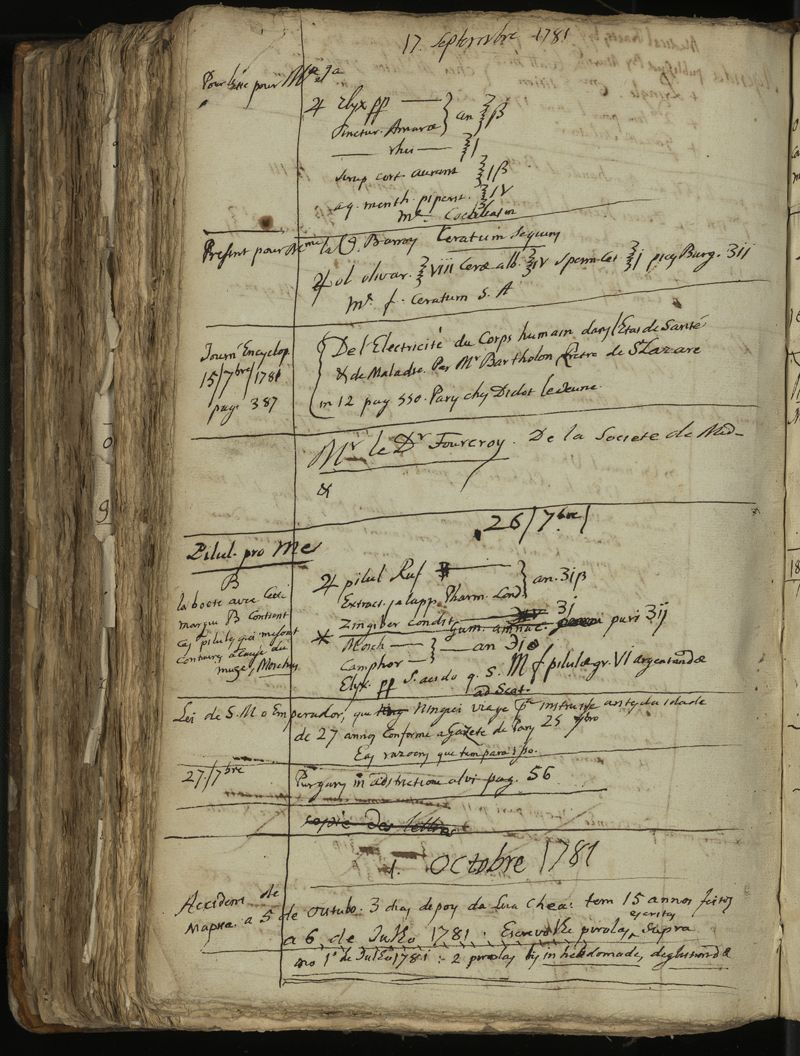 17. Septembre 1781
pour M^e
♃ Elyx pp —
Tinctur. Amarae } an ℥ß
— rhei — ℥I
Syrup cort aurant ℥Iß
aq. menth. piperit. ℥IV
M^e. Cochleatim
Present pour M^me la Barroy Ceratum sequens
♃ ol olivar. ℥VIII Cerae alb. ℥IV Sperm Cet ℥j picis Burg. ʒij
M^e f. Ceratum S. A
Journ Encyclop.
15/7^bre/1781
pag. 387
De l'Electricité du Corps humain dans l'Etat de Santé
& de Maladie. Par M^r Bartholon Pretre de S^t Lazare
in 12 pag 550. Parys chez Didot le Jeune.
M^r le D^r Fourcroy. De la Societe de Med-
&
26/7^bre/
Pilul. pro Me
B
la boete avec cette
marque B Contient
ces pilules qui
a cause du
musc, Moschus
♃ pilul Ruf —
Extract. jalapp Pharm. Lond } an. ʒiß
Zingiber condit ʒj
* gum. puri ʒij
Mosch —
Camphor — } — an
Elyx. pp S. acido q. S. M f pilulae gr. VI argentandae
ad Scat.
Lei de S. M o Emperador, que Ninguem viage instruise antes da idade
de 27 annos Conforme a Gazete de Pary 25 7bro
Eas razoens que tem para isso.
27/7^bre
Purgans in adstrictione alvi pag. 56
copie des lettres
1. Octobre 1781
Accident de
Mapra. a 5 de Outubo. 3 dias depoys da Sua Chea: tem 15 annos feitos
a 6 de Julho 1781. Escrevolhe pirolas escritas Supra
ao 1º de Julho 1781 :- 2 pirolas bis in hebdomade, deglutiendae